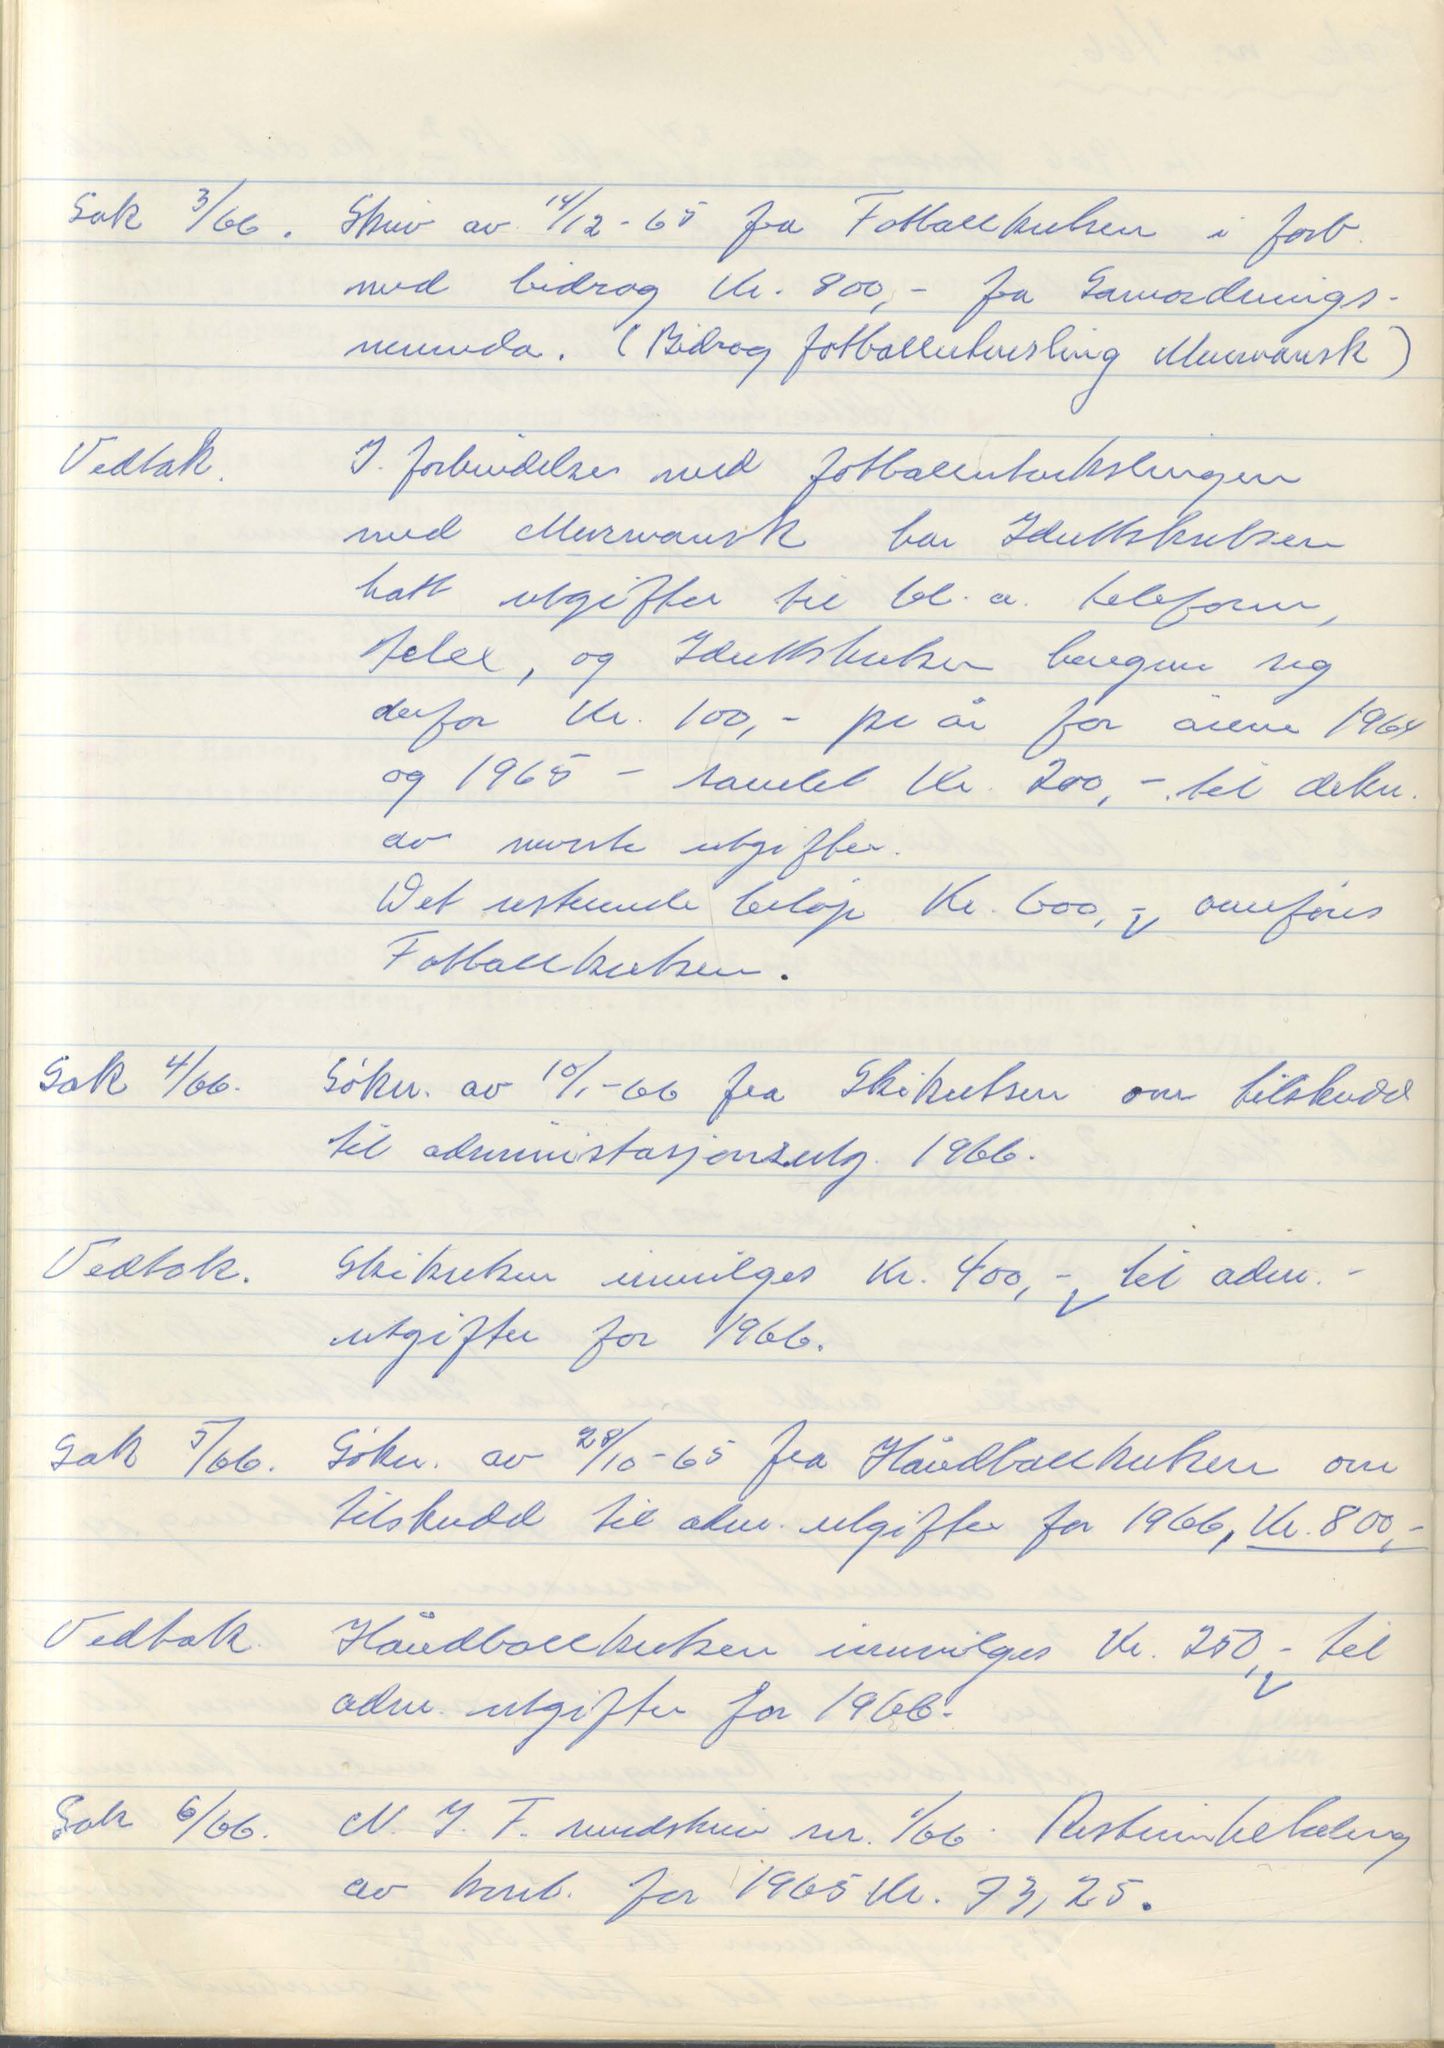 Sak 3/66. Skriv av 14/12-65 fra Fotballkretsen i forb.
med bidrag Kr. 800,- fra Samordnings-
nemnda. (Bidrag fotballutveksling Murmansk)
Vedtak. I forbindelse med fotballutvekslingen
med Murmansk har Idrettskretsen
hatt utgifter til bl. a. telefoner,
telex, og Idrettskretsen beregner seg
derfor Kr. 100,- pr år for årene 1964
og 1965 - samlet Kr. 200,- til dekn.
av nevnte utgifter.
Det resterende beløp Kr. 600,- overføres
Fotballkretsen.
Sak 4/66. Søkn. av 10/1-66 fra Skikretsen om tilskudd
til administasjonsutg. 1966.
Vedtak. Skikretsen innvilges Kr. 400,- til adm.-
utgifter for 1966.
Sak 5/66. Søkn. av 28/10-65 fra Håndballkretsen om
tilskudd til adm. utgifter for 1966, Kr. 800,-
Vedtak Håndballkretsen innvilges Kr. 250,- til
adm. utgifter for 1966.
Sak 6/66. N. I. F. rundskriv nr. 1/66. Restinnbetaling
av kont. for 1965 Kr. 73,25.